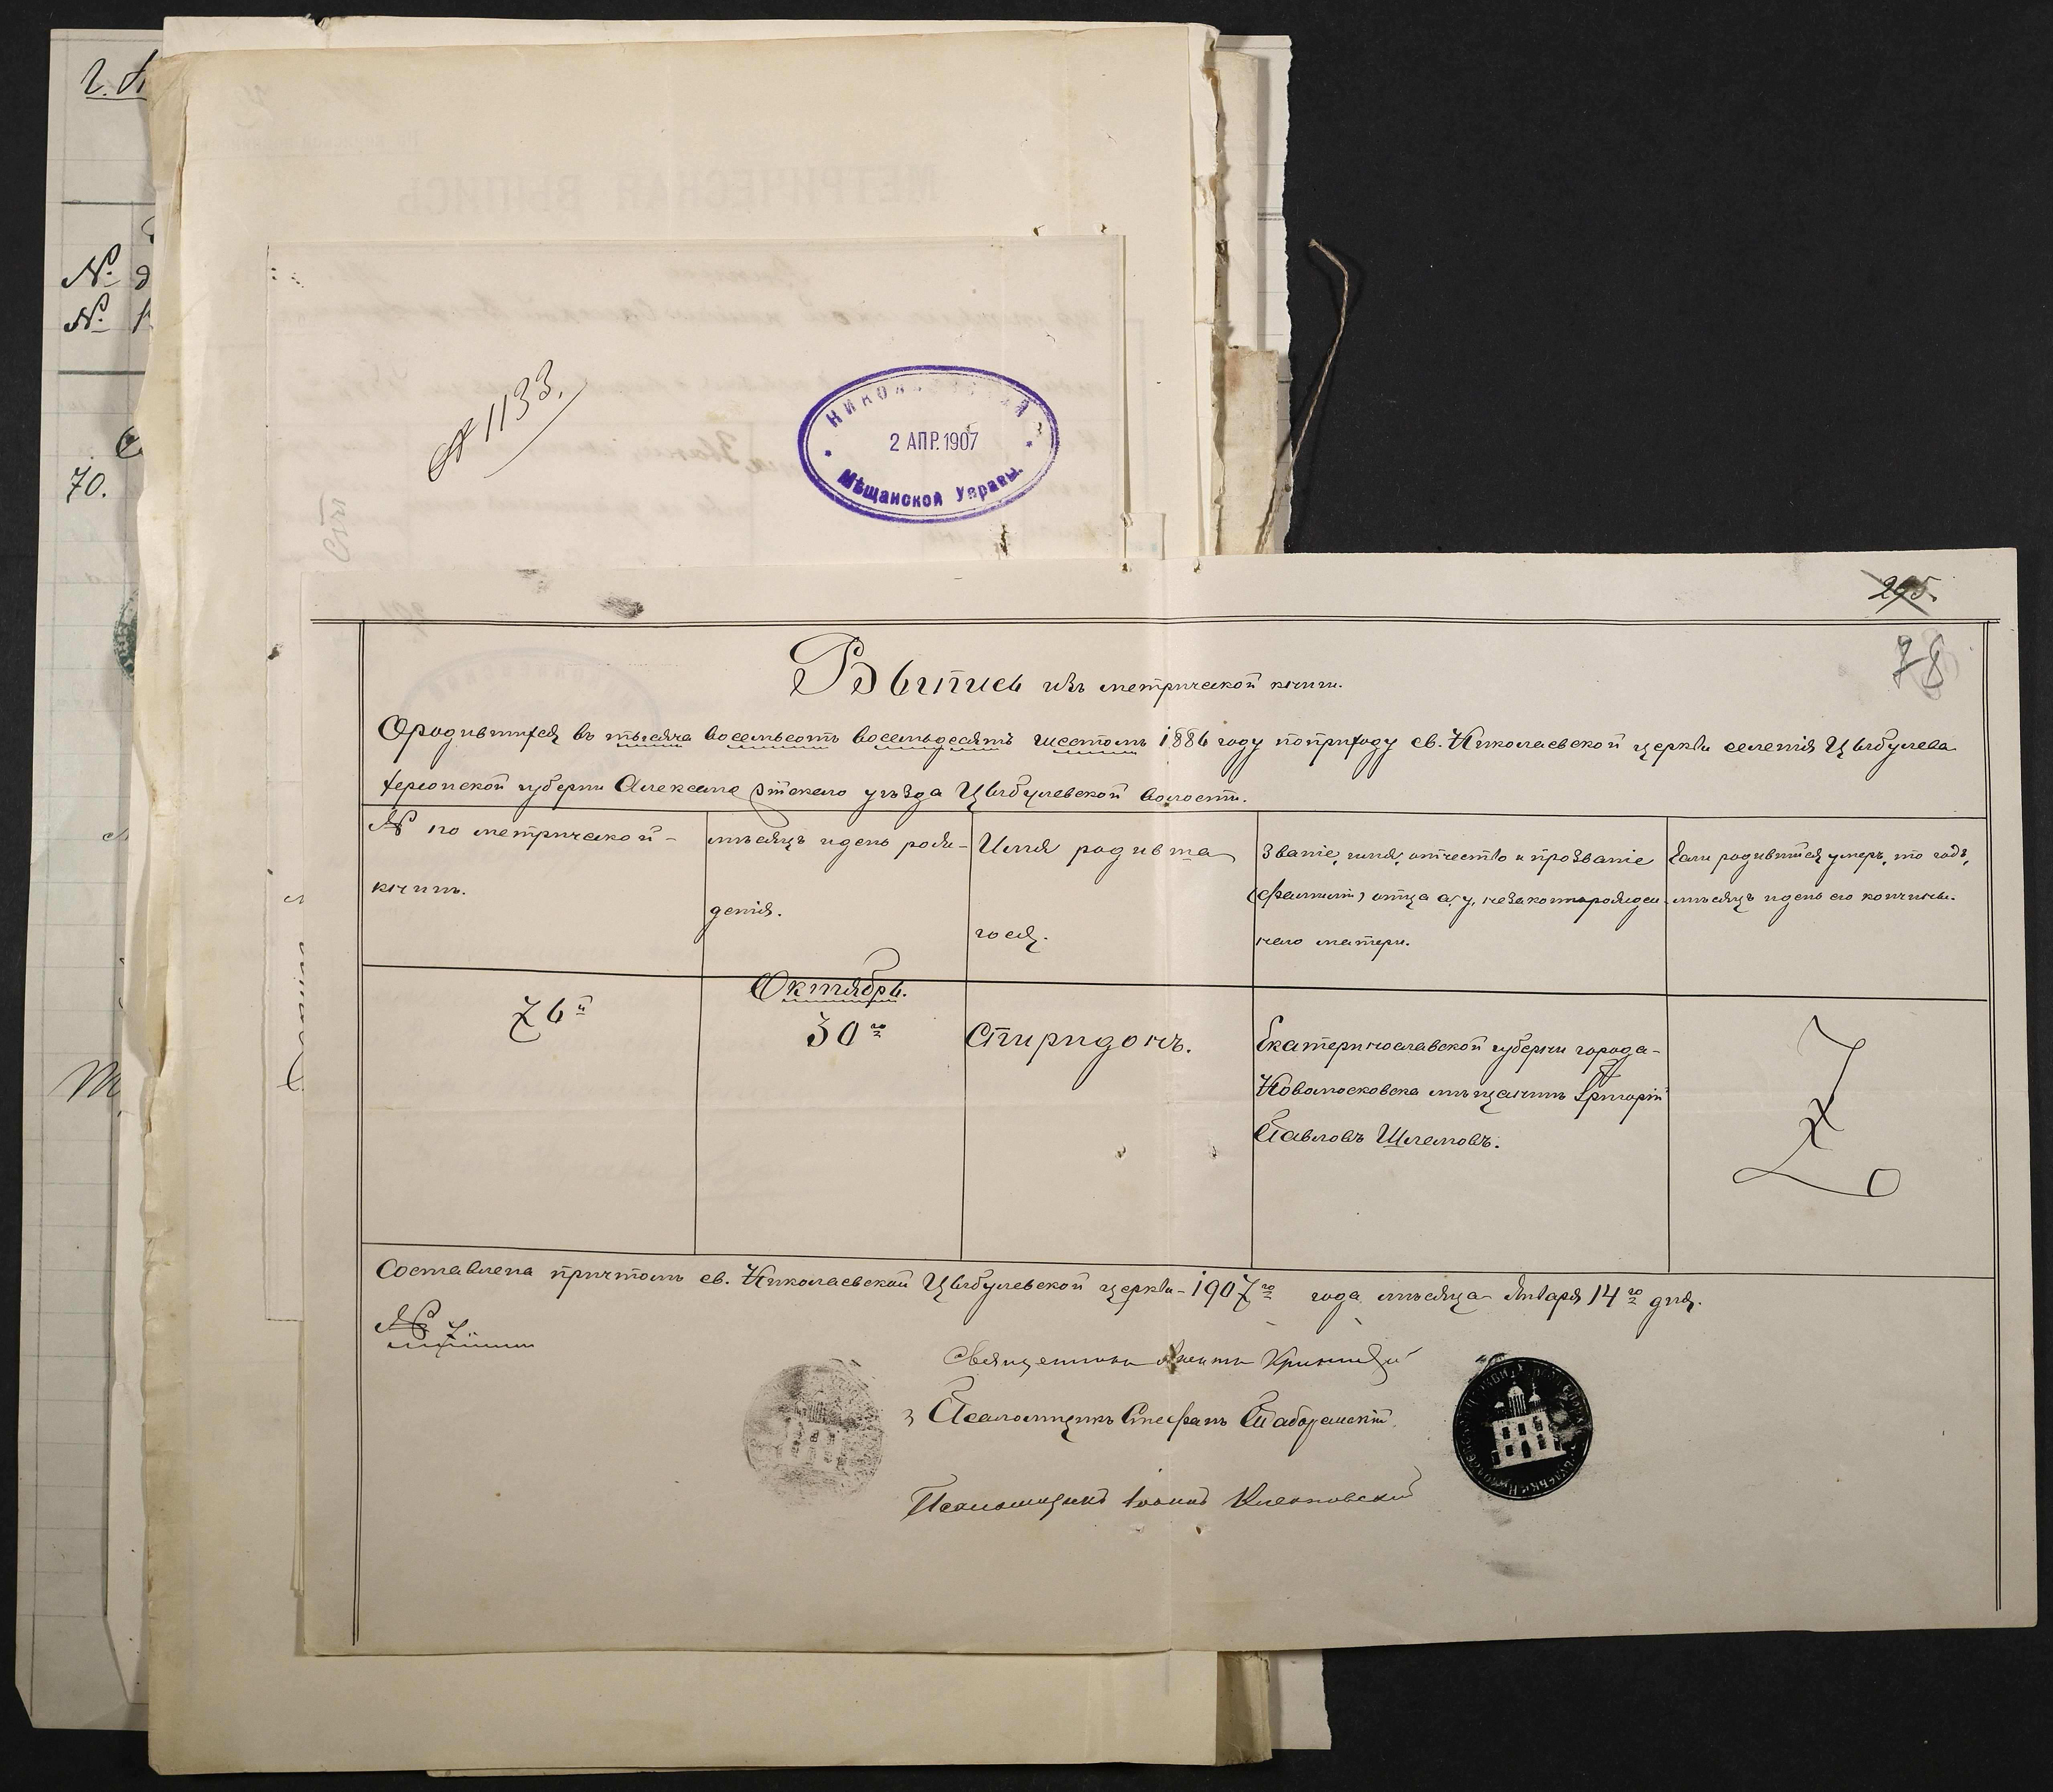 № 1133.
НИКОЛАЕВСКАЯ
2 АПР. 1907
Мѣщанской Управы.
№
№
70.
295.
78
Выпись изъ метрической книги.
О родившихся въ тысяча восемьсотъ восемьдесятъ шестомъ 1886 году по приходу св. Николаевской церкви селенія Цыбулева
херсонской губерніи Александрійскаго уѣзда Цыбулевской волости.
№ по метрической
книгѣ.
мѣсяцъ и день рож-
денія.
Имя родивша
гося.
Званіе, имя, отчество и прозваніе
(фамилія) отца а, у, незаконорожден
наго матери.
Если родившійся умеръ, то годъ,
мѣсяцъ и день его кончины.
76й
Октябрь.
30го
Спиридонъ.
Екатеринославской губерніи города
Новомосковска мѣщанинъ Григорій
Павловъ Шлемовъ.
Составлена причтомъ св. Николаевской Цыбулевской церкви 1907го года мѣсяца Января 14го дня.
№ 7
Священникъ
Псаломщикъ Стефанъ
Псаломщикъ Іоаннъ